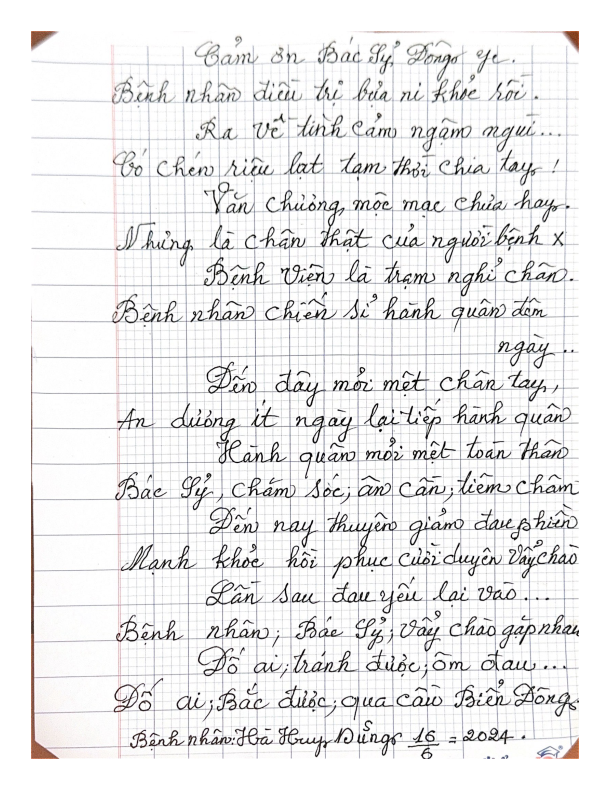 Cảm ơn Bác Sỹ, Đông y.
Bệnh nhân điều trị bựa ni khỏe rồi.
Ra về tình cảm ngậm ngui...
Có chén riệu lạt tạm thời chia tay!
Văn chương, mộc mạc chưa hay.
Nhưng là chân thật của người bệnh x
Bệnh viện là trạm nghỉ chân.
Bệnh nhân chiến sĩ hành quân đêm
ngày..
Đến đây mỏi mệt chân tay,
An dưỡng ít ngày lại tiếp hành quân
Hành quân mỏi mệt toàn thân
Bác Sỹ, chăm sóc; ân cần; tiêm châm
Đến nay thuyên giảm đau phiền
Mạnh khỏe hồi phục cười duyên vẫy chào
Lần sau đau yếu lại vào...
Bệnh nhân; Bác Sỹ; vẫy chào gặp nhau
Đố ai; tránh được; ốm đau...
Đố ai; Bắc được; qua cầu Biển Đông.
Bệnh nhân: Hà Huy Dũng 16/6 = 2024.